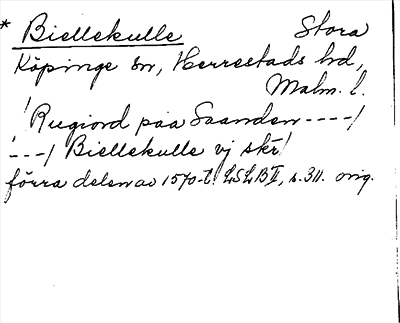 * Biellekulle Stora
Köpinge sn, Herrestads hd,
Malm. l.
! Rugiord paa Saanden ----/
!---/ Biellekulle vj skr!
förra delen av 1570-t. LSLB II, s. 311. orig.